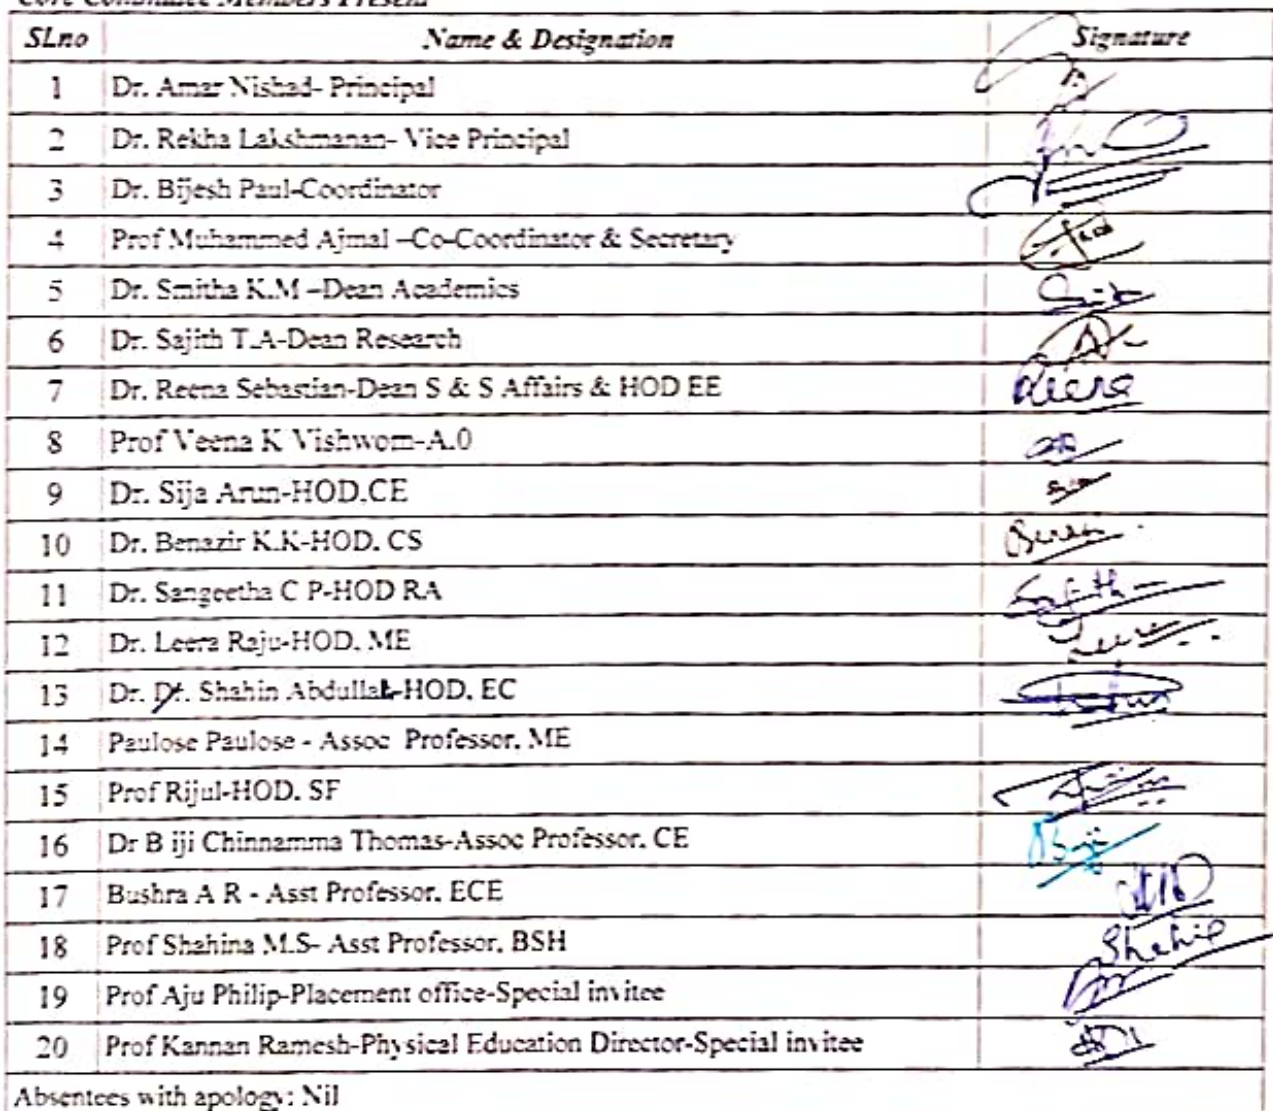 Core Committee Members Present
SLno Name & Designation Signature
1 Dr. Amar Nishad- Principal
2 Dr. Rekha Lakshmanan- Vice Principal
3 Dr. Bijesh Paul-Coordinator
4 Prof Muhammed Ajmal –Co-Coordinator & Secretary
5 Dr. Smitha K.M –Dean Academics
6 Dr. Sajith T.A-Dean Research
7 Dr. Reena Sebastian-Dean S & S Affairs & HOD EE Reena
8 Prof Veena K Vishwom-A.0
9 Dr. Sija Arun-HOD.CE
10 Dr. Benazir K.K-HOD. CS
11 Dr. Sangeetha C P-HOD RA
12 Dr. Leera Raju-HOD. ME
13 Dr. Dr. Shahin Abdullah-HOD. EC
14 Paulose Paulose - Assoc Professor. ME
15 Prof Rijul-HOD. SF
16 Dr B iji Chinnamma Thomas-Assoc Professor. CE
17 Bushra A R - Asst Professor. ECE
18 Prof Shahina M.S- Asst Professor. BSH
19 Prof Aju Philip-Placement office-Special invitee
20 Prof Kannan Ramesh-Physical Education Director-Special invitee
Absentees with apology: Nil